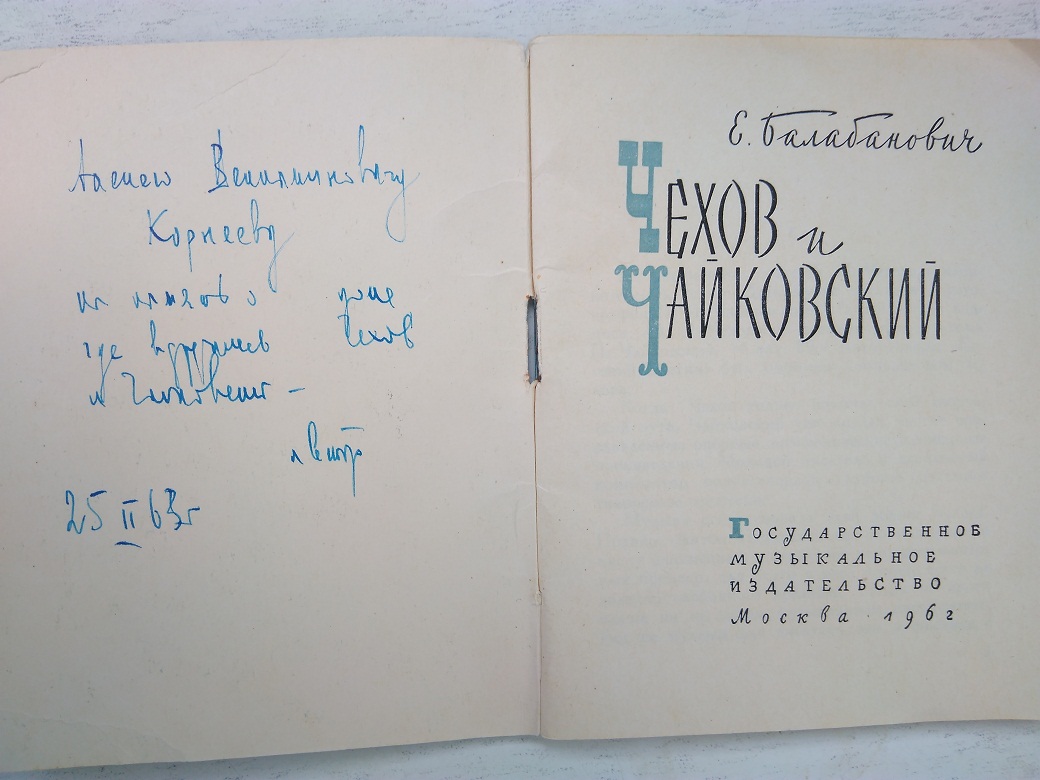 Вениаминовичу
Корнееву
о доме
где Чехов
и
автор
25 II 63г
Е. Балабанович
Чехов и
Чайковский
Государственное
музыкальное
издательство
Москва · 1962